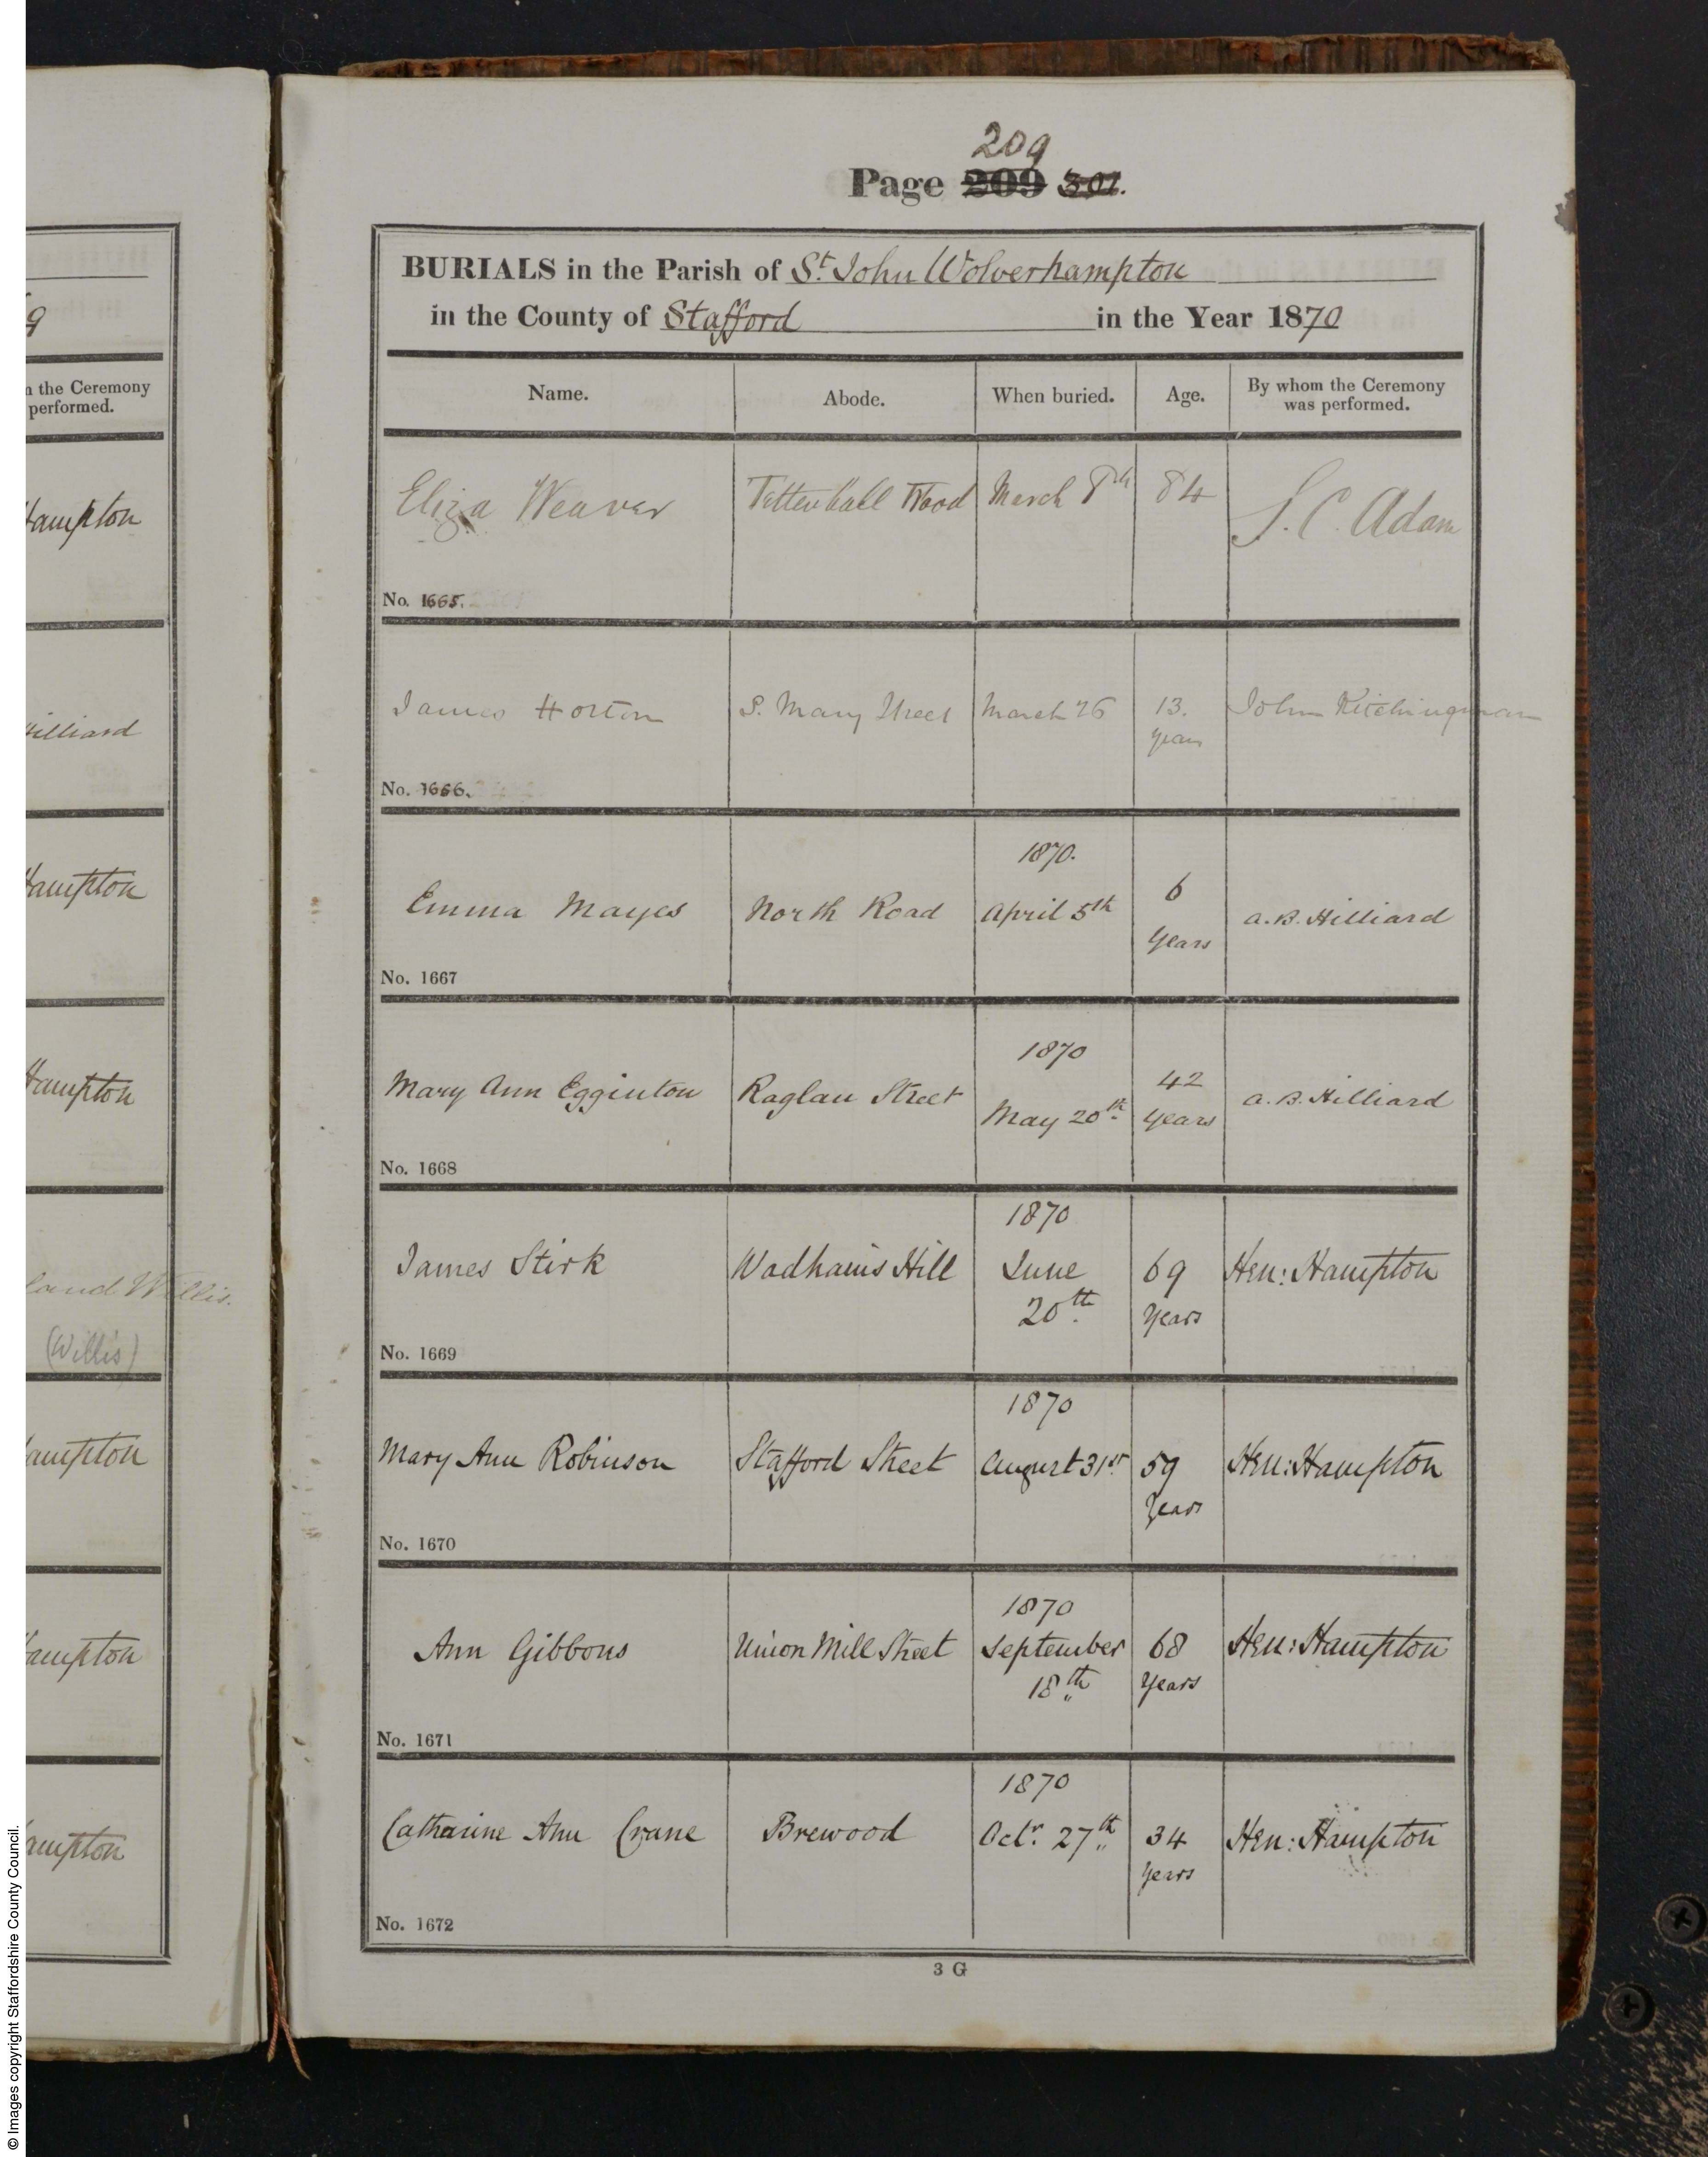 209
Page 209 301.
BURIALS in the Parish of St. John Wolverhampton
in the County of Stafford in the Year 1870
Name. Abode. When buried. Age. By whom the Ceremony was performed.
Eliza Weaver Tettenhall Wood March 8th 84 S. C. Adam
No. 1665.
James Horton S. Mary Street March 26 13. years John Kitchingman
No. 1666.
1870.
Emma Mayes North Road April 5th 6 Years A. B. Hilliard
No. 1667
1870
Mary Ann Egginton Raglan Street May 20th 42 Years A. B. Hilliard
No. 1668
1870
James Stirk Wadhams Hill June 20th. 69 Years Hen: Hampton
No. 1669
1870
Mary Ann Robinson Stafford Street August 31st 59 Years Hen: Hampton
No. 1670
1870
Ann Gibbons Union Mill Street September 18th 68 Years Hen: Hampton
No. 1671
1870
Catharine Ann Crane Brewood Octr. 27th 34 Years Hen: Hampton
No. 1672
3 G
9
n the Ceremony
performed.
Hampton
Hilliard
Hampton
Hampton
land Willis.
(Willis)
Hampton
Hampton
Hampton
© Images copyright Staffordshire County Council.